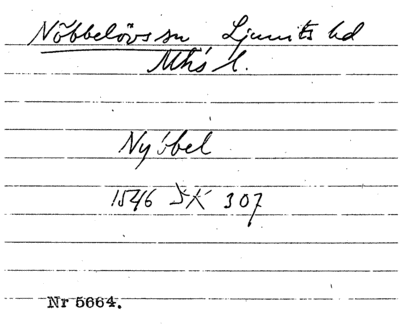 Nöbbelövs sn Ljunits hd
Mhs l.
Nyöbel
1546 SK 307
Nr 5664.